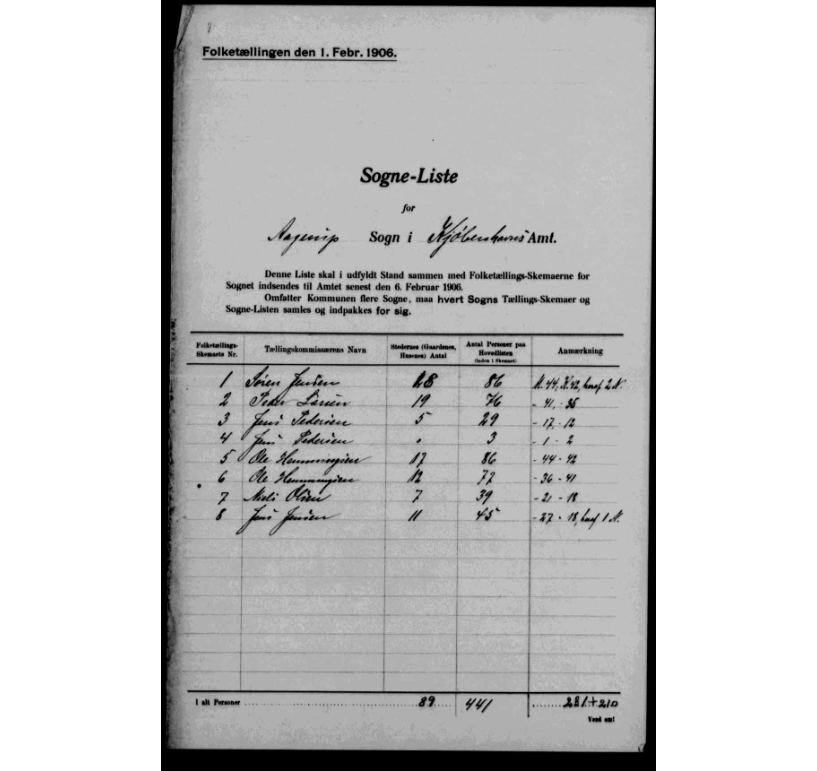 Folketællingen den 1. Febr. 1906.
Sogne-Liste
for
Aagerup Sogn i Kjøbenhavns Amt.
Denne Liste skal i udfyldt Stand sammen med Folketællings-Skemaerne for
Sognet indsendes til Amtet senest den 6. Februar 1906.
Omfatter Kommunen flere Sogne, maa hvert Sogns Tællings-Skemaer og
Sogne-Listen samles og indpakkes for sig.
Folketællings-Skemaets Nr. Tællingskommissærens Navn Stedernes (Gaardenes, Husenes) Antal Antal Personer paa Hovedlisten (Inden i Skemaet) Anmærkning
1 Søren Jensen 28 86 M. 44, K. 42, heraf 2 N.
2 Peder Larsen 19 76 - 41 - 35
3 Jens Pedersen 5 29 - 17 - 12
4 Jens Pedersen 3 - 1 - 2
5 Ole Hemmingsen 17 86 - 44 - 42
6 Ole Hemmingsen 12 77 - 36 - 41
7 Niels Olsen 7 39 - 21 - 18
8 Jens Jensen 11 45 - 27 - 18, heraf 1 N.
I alt Personer 89 441 231 + 210
Vend om!